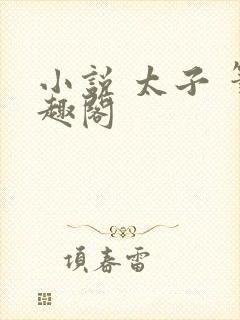 小説 太子
趣閣
項春雷